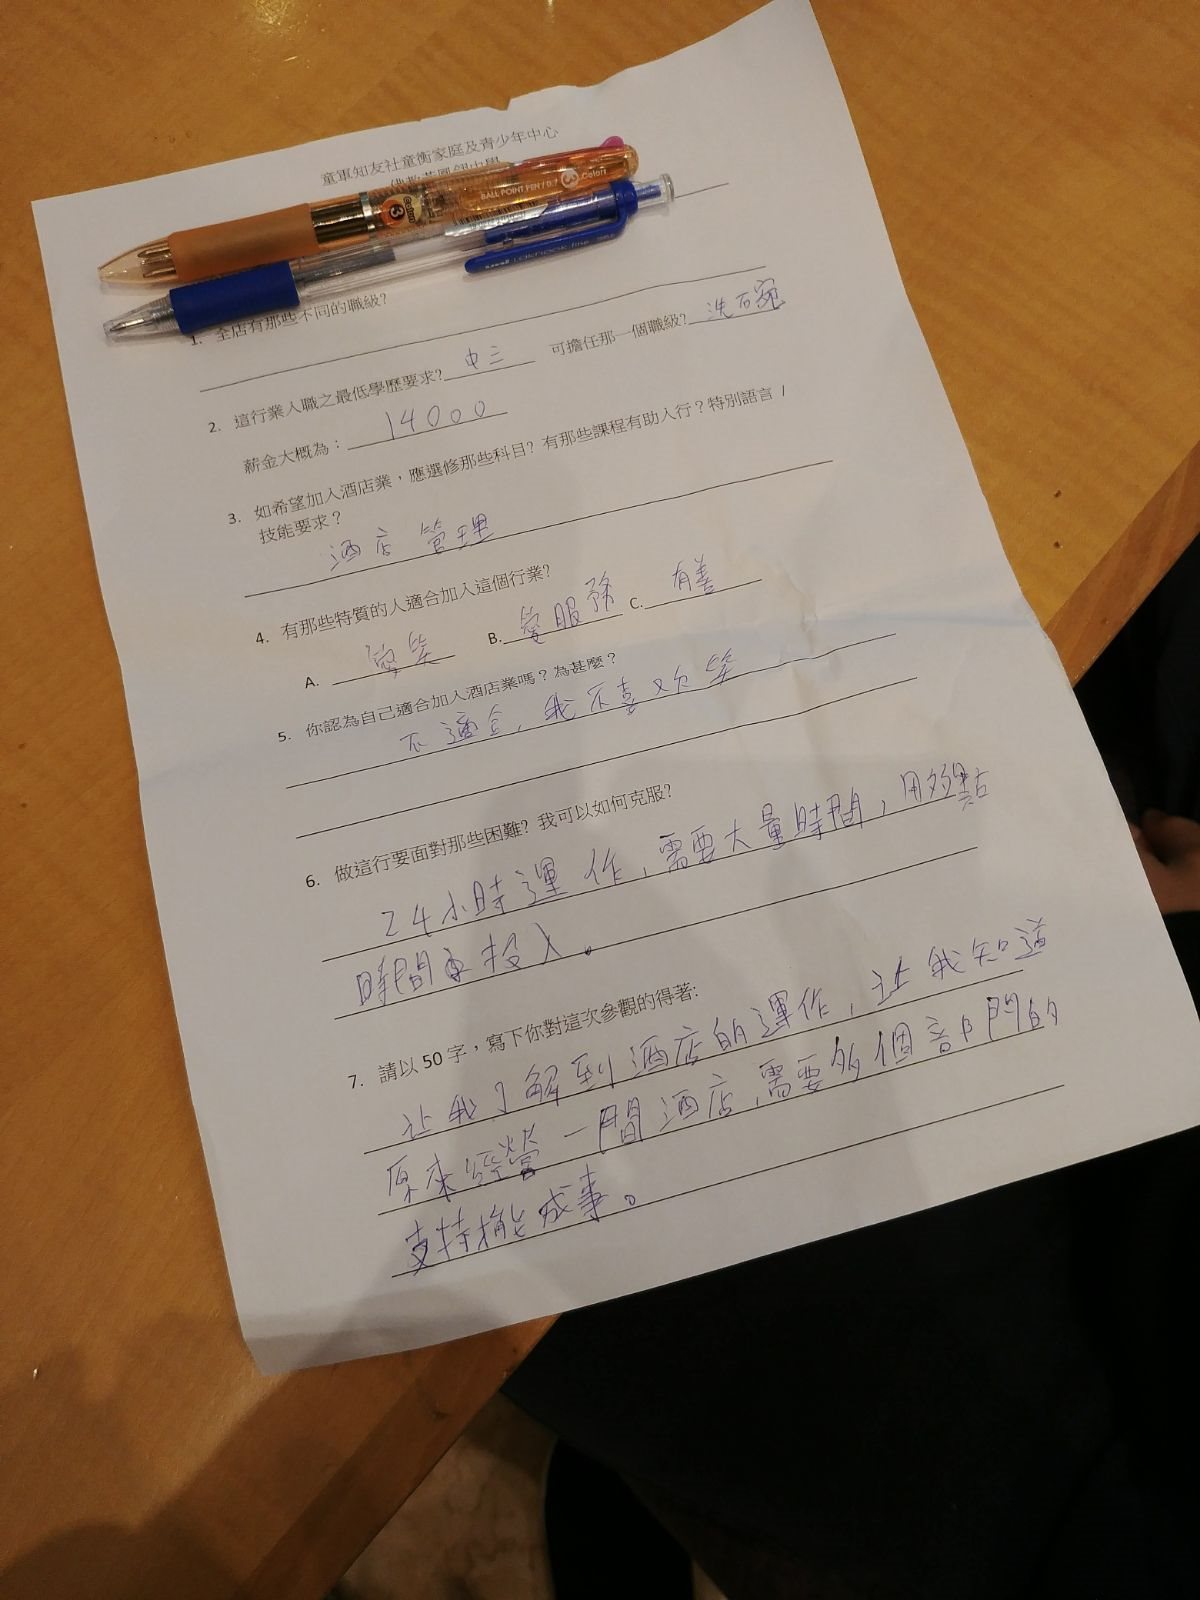 童軍知友社童衡家庭及青少年中心
BALL POINT PEN / 0.7 3 Colors
1. 全店有那些不同的職級?
2. 這行業入職之最低學歷要求? 中三 可擔任那一個職級? 洗碗
薪金大概為： 14000
3. 如希望加入酒店業，應選修那些科目? 有那些課程有助入行？特別語言 /
技能要求？
酒店管理
4. 有那些特質的人適合加入這個行業?
A. 愛笑 B. 愛服務 C. 有善
5. 你認為自己適合加入酒店業嗎？為甚麼？
不適合, 我不喜欢笑
6. 做這行要面對那些困難? 我可以如何克服?
24小時運作, 需要大量時間, 用多點
時間來投入。
7. 請以 50 字，寫下你對這次參觀的得著:
让我了解到酒店的運作, 让我知道
原來經營一間酒店, 需要多個部門的
支持才能成事。